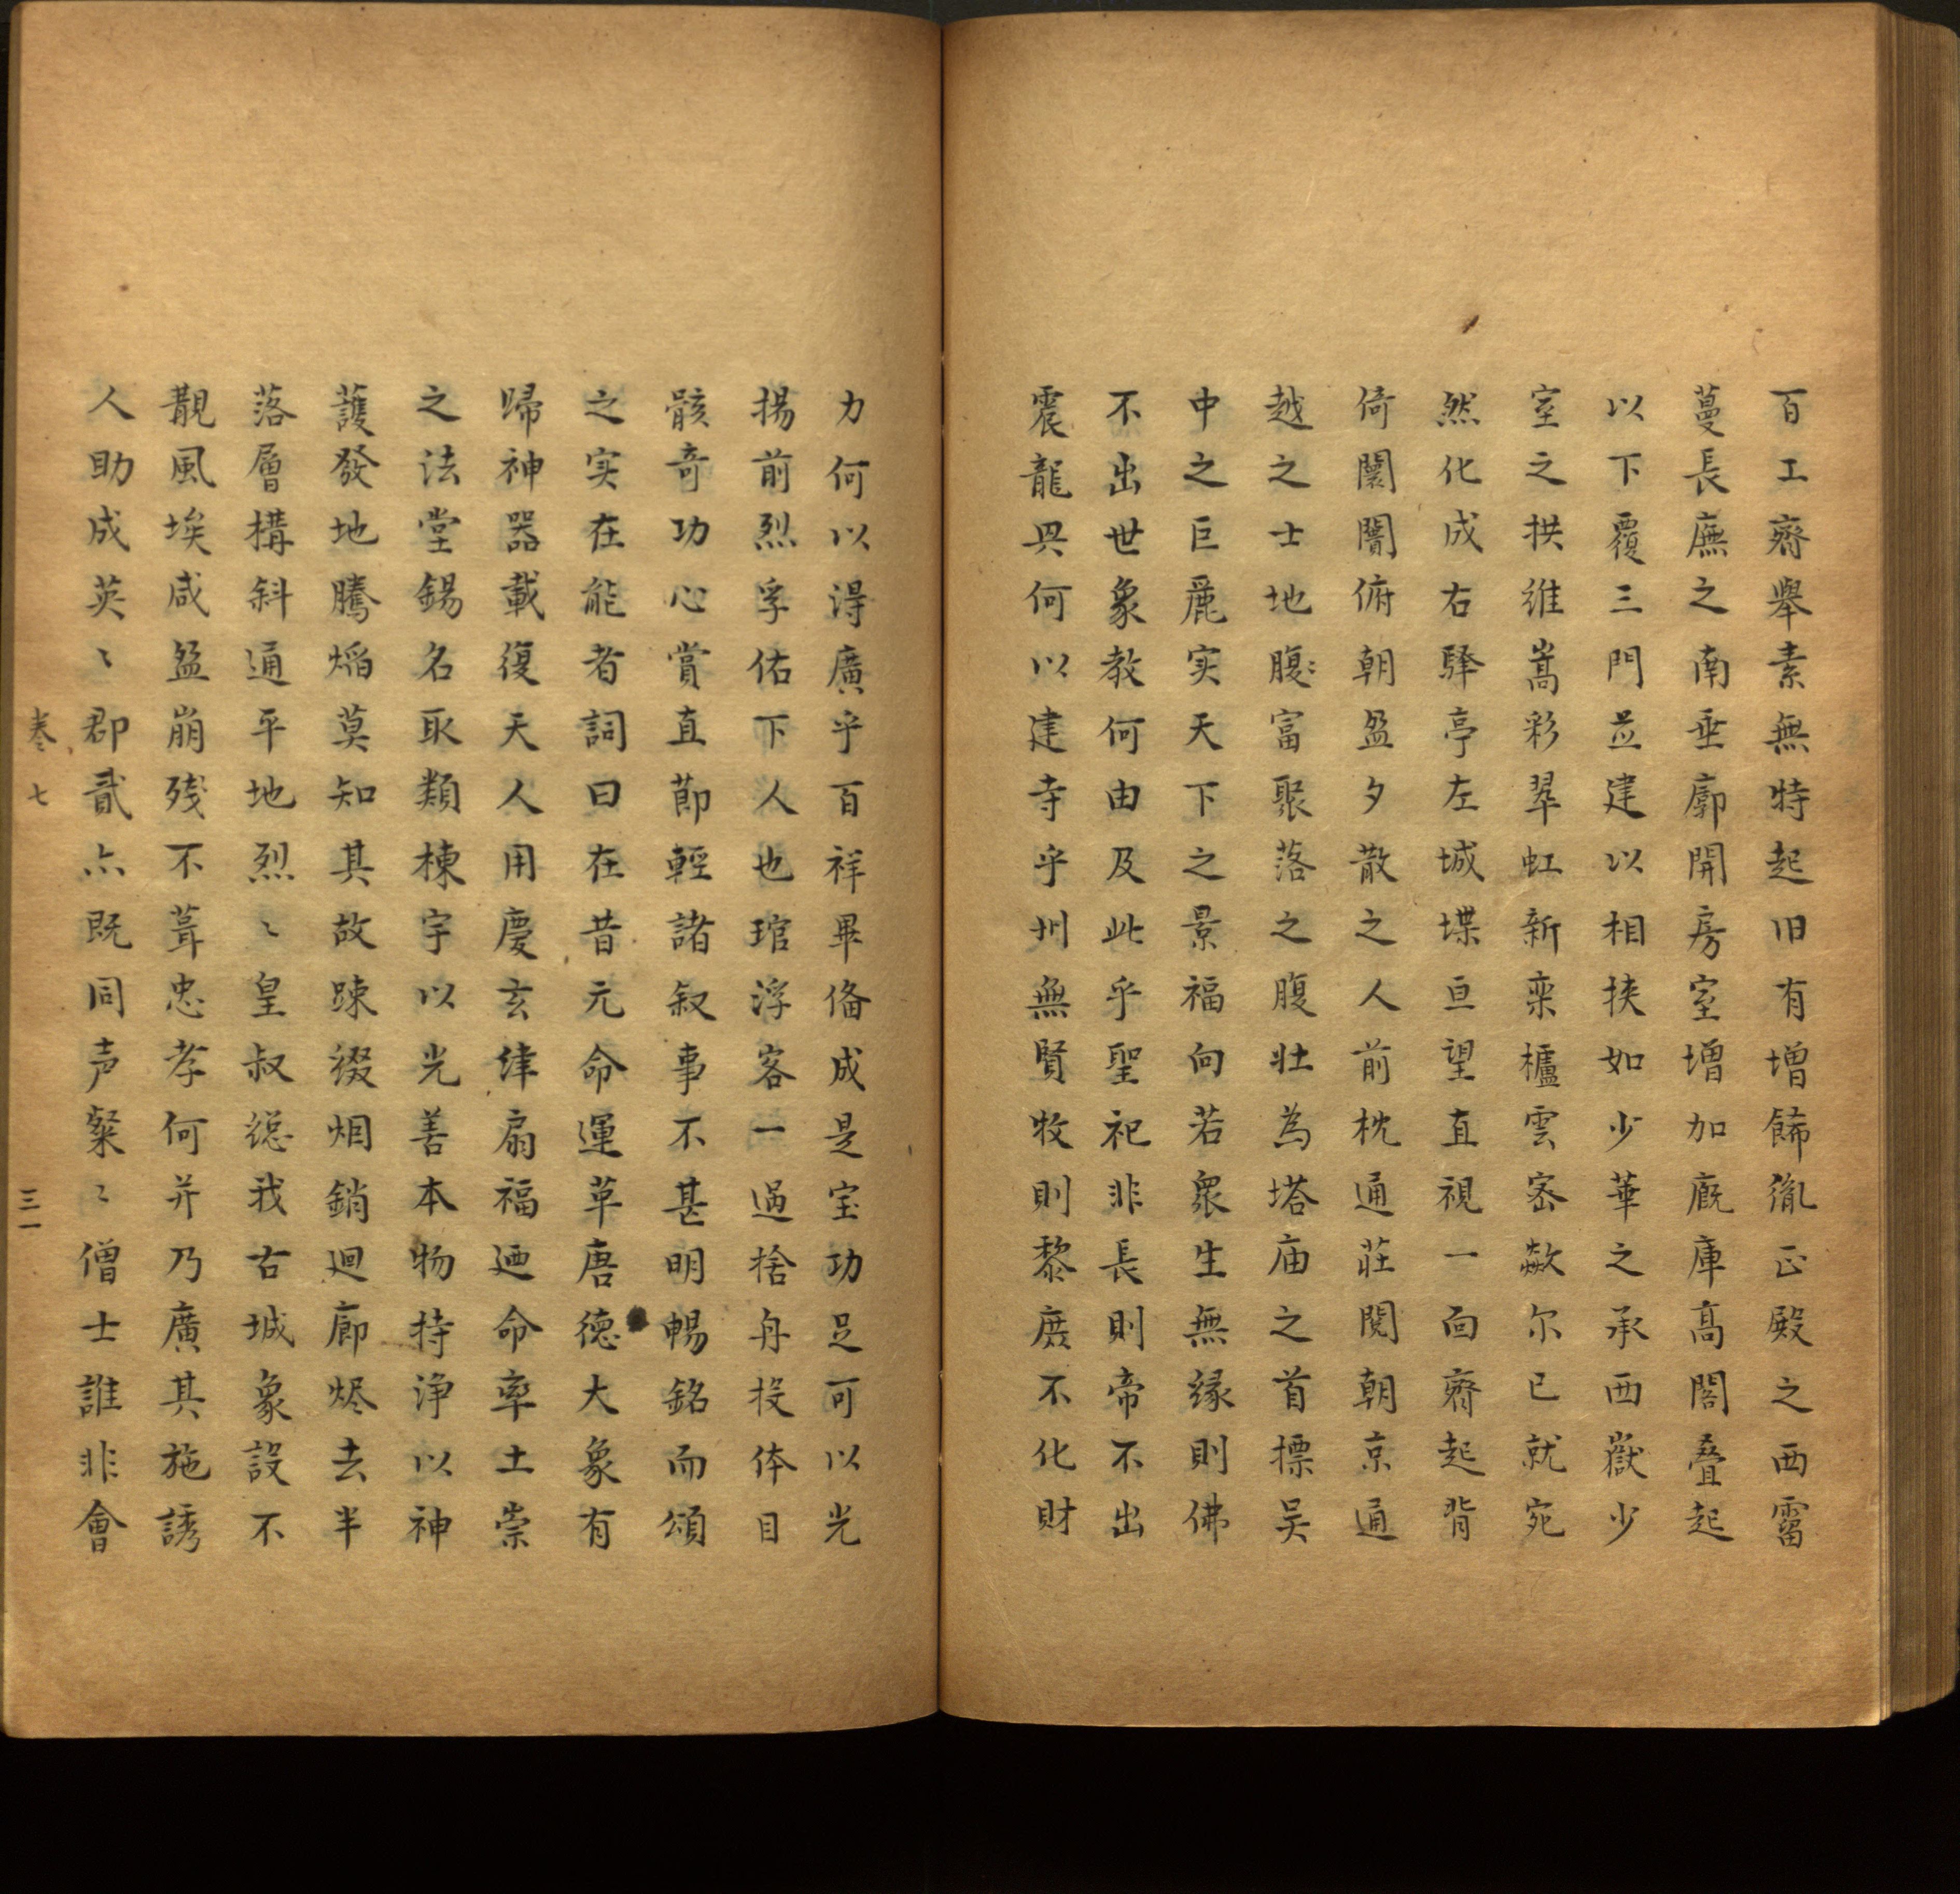 百工齊舉素無特起旧有增餙胤正殿之西霤
蔓長廡之南垂廓開房室增加廐庫高閣叠起
以下覆三門並建以相挾如少華之承西嶽少
室之拱維嵩彩翠虹新栾櫨雲宻歘尔已就宛
然化成右驛亭左城堞亘望直視一面齊起背
倚闤闠俯朝盈夕散之人前枕通莊閱朝京通
越之士地腹富聚落之腹壯為塔庙之首摽吴
中之巨麗实天下之景福向若衆生無緣則佛
不出世象教何由及此乎聖祀非長則帝不出
震龍興何以建寺乎州無賢牧則黎庻不化財
力何以淂廣乎百祥畢俻成是宝功足可以光
揚前烈孚佑下人也琯浮客一過捨舟投体目
骸竒功心賞直節輕諸叙事不甚明暢銘而頌
之实在能者詞曰在昔元命運革唐德大象有
歸神器載復天人用慶玄律扇福廼命率土崇
之法堂錫名取類棟宇以光善本物持浄以神
護發地騰熖莫知其故踈綴烟銷廻廊烬去半
落層構斜通平地烈〻皇叔䋲我古城象設不
覩風埃咸盈崩残不葺忠孝何并乃廣其施誘
人助成英〻郡貳亦既同声粲〻僧士誰非會
卷七
三一